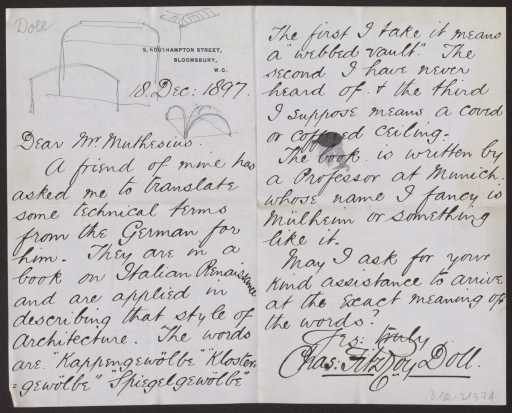 Doll
5, SOUTHAMPTON STREET,
BLOOMSBURY,
W.C.
18. Dec: 1897.
Dear Mr. Muthesius.
A friend of mine has
asked me to translate
some technical terms
from the German for
him. They are in a
book on Italian Renaissance
and are applied in
describing that style of
Architecture. The words
are "Kappengewölbe" "Kloster-
=gewölbe" "Spiegelgewölbe"
The first I take it means
a "webbed vault" The
second I have never
heard of & the third
I suppose means a coved
or coffered ceiling.
The book is written by
a Professor at Munich.
whose name I fancy is
Mülheim or something
like it.
May I ask for your
kind assistance to arrive
at the exact meaning of
the words?
Yrs: truly
Chas: FitzRoy Doll.